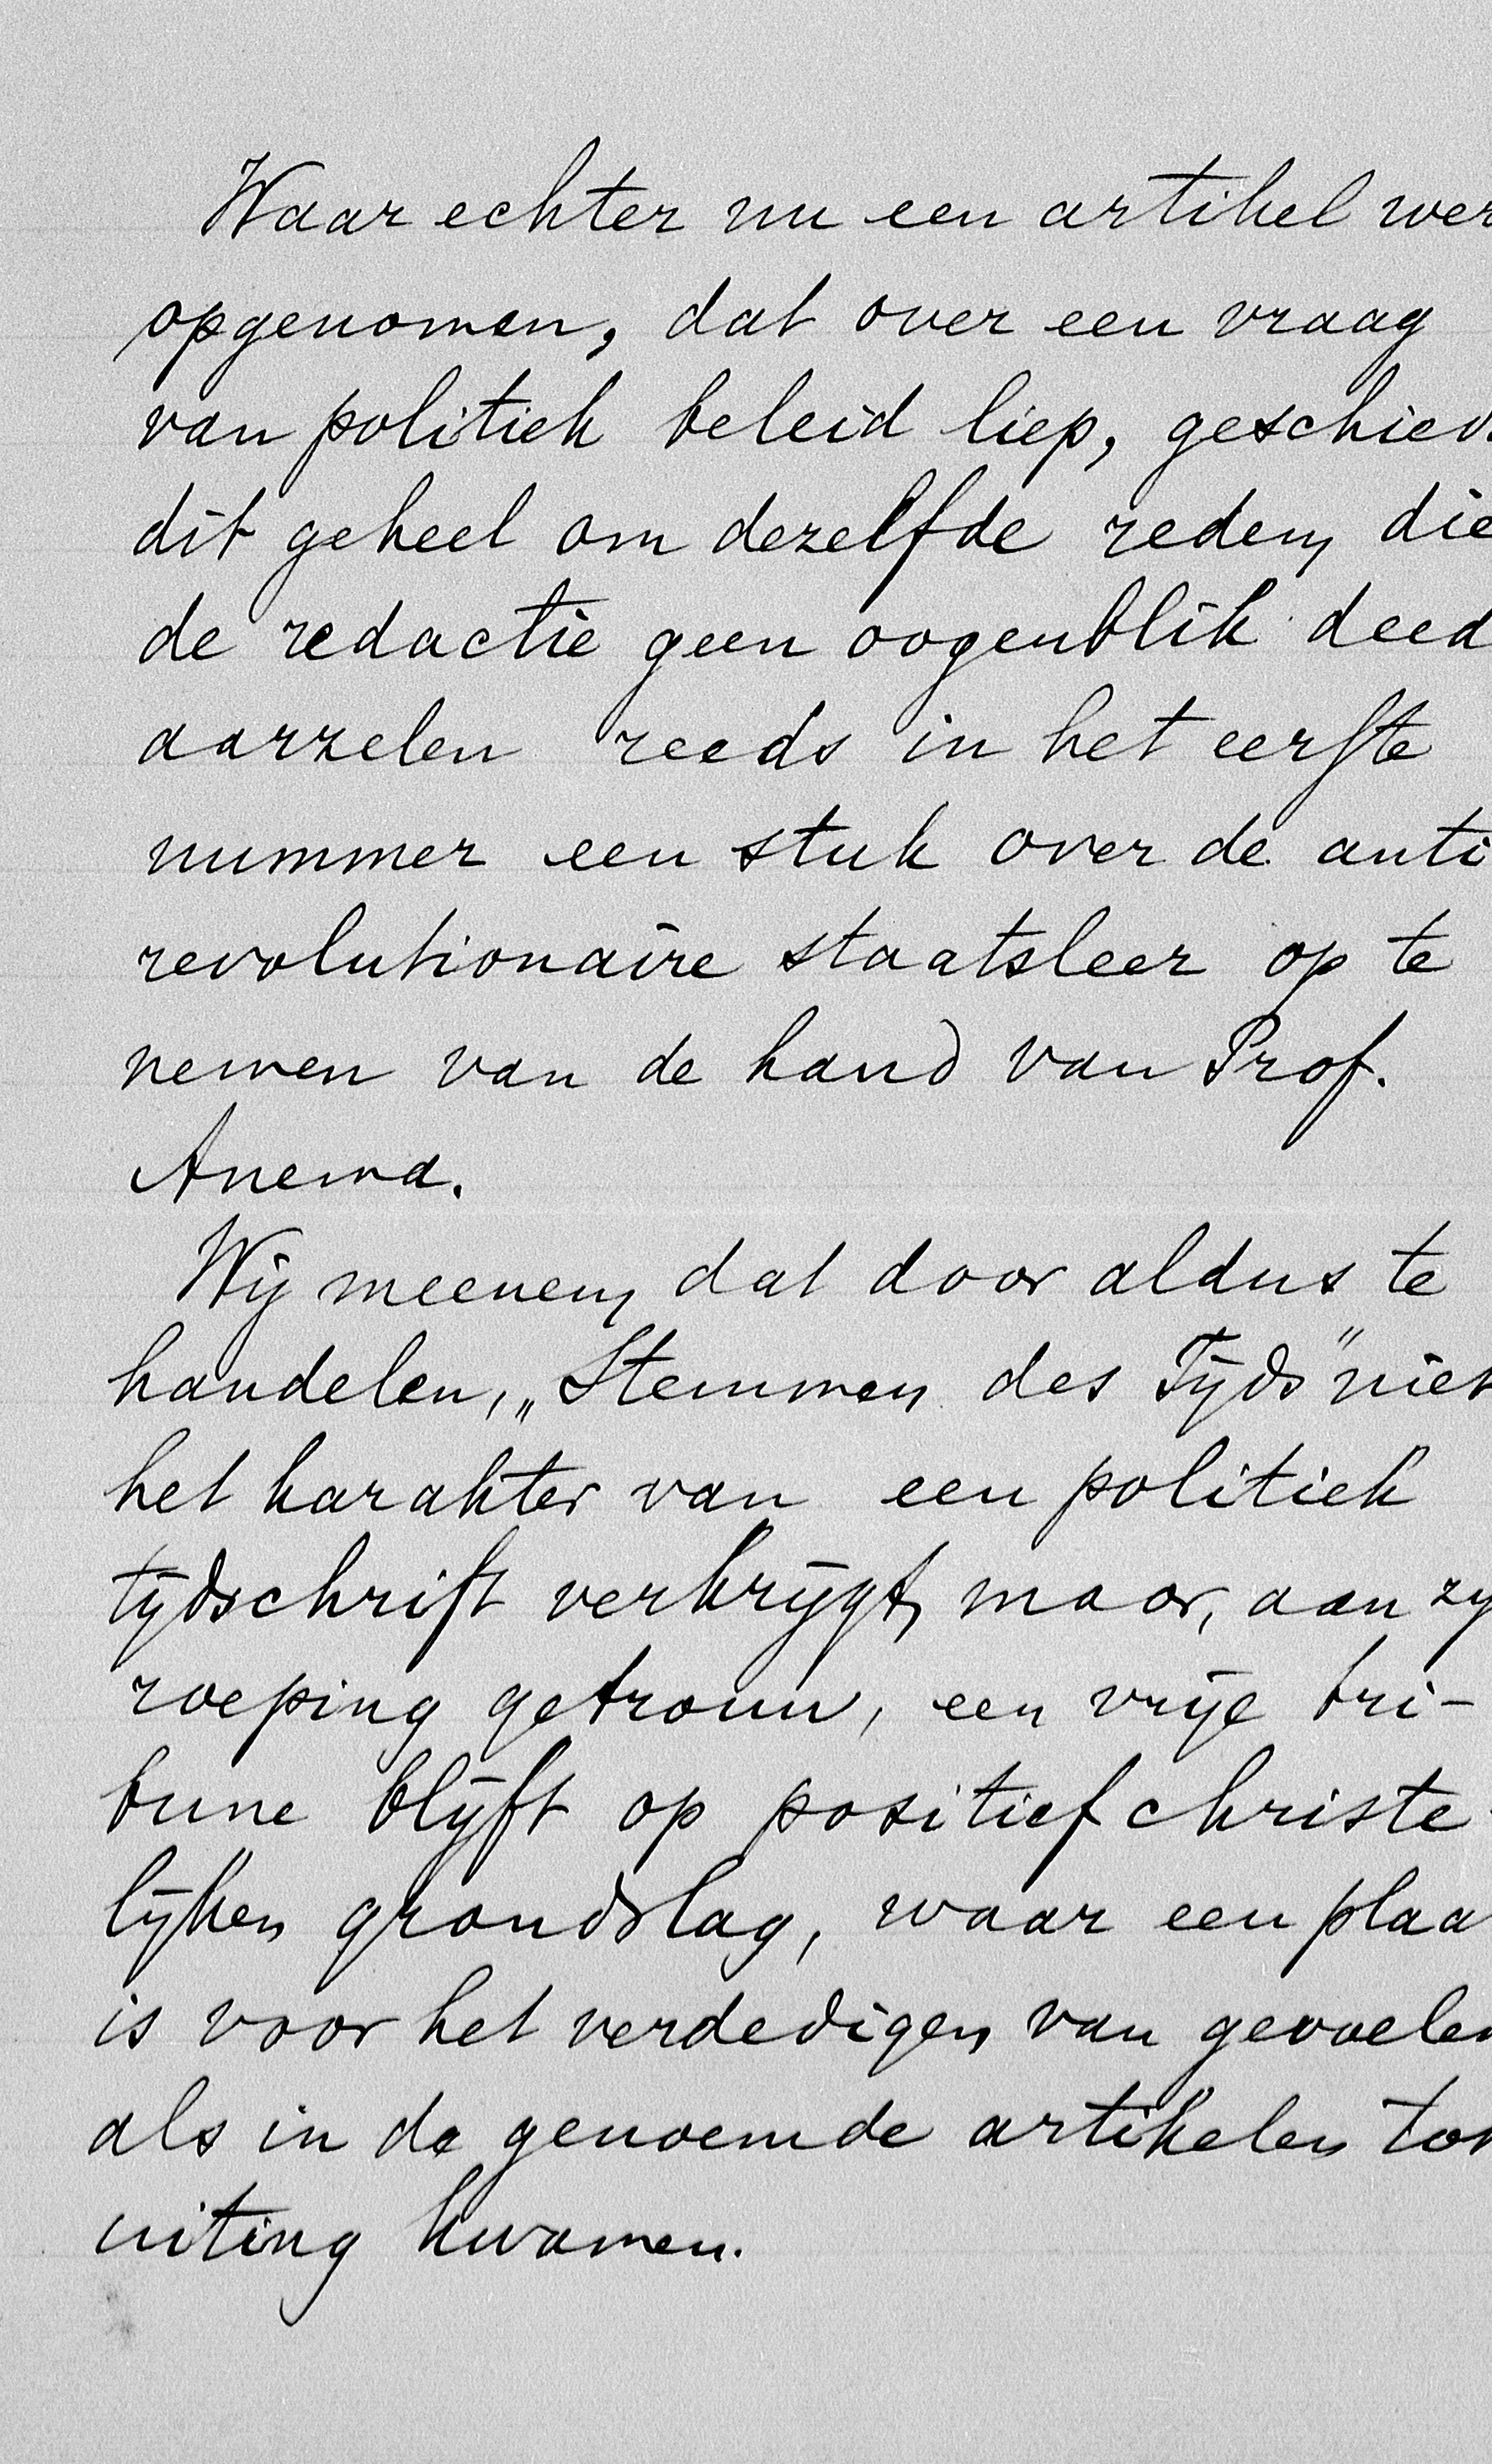 Waar echter nu een artikel wer
opgenomen, dat over een vraag
van politiek beleid liep, geschied
dit geheel om dezelfde reden, die
de redactie geen oogenblik deed
aarzelen reeds in het eerste
nummer een stuk over de anti
revolutionaire staatsleer op te
nemen van de hand van Prof.
Anema.
Wij meenen, dat door aldus te
handelen, „Stemmen des Tijds" niet
het karakter van een politiek
tijdschrift verkrijgt, maar, aan zij
roeping getrouw, een vrije tri-
bune blijft op positief christe-
lijken grondslag, waar een plaa
is voor het verdedigen van gevoelen
als in de genoemde artikelen tot
uiting kwamen.